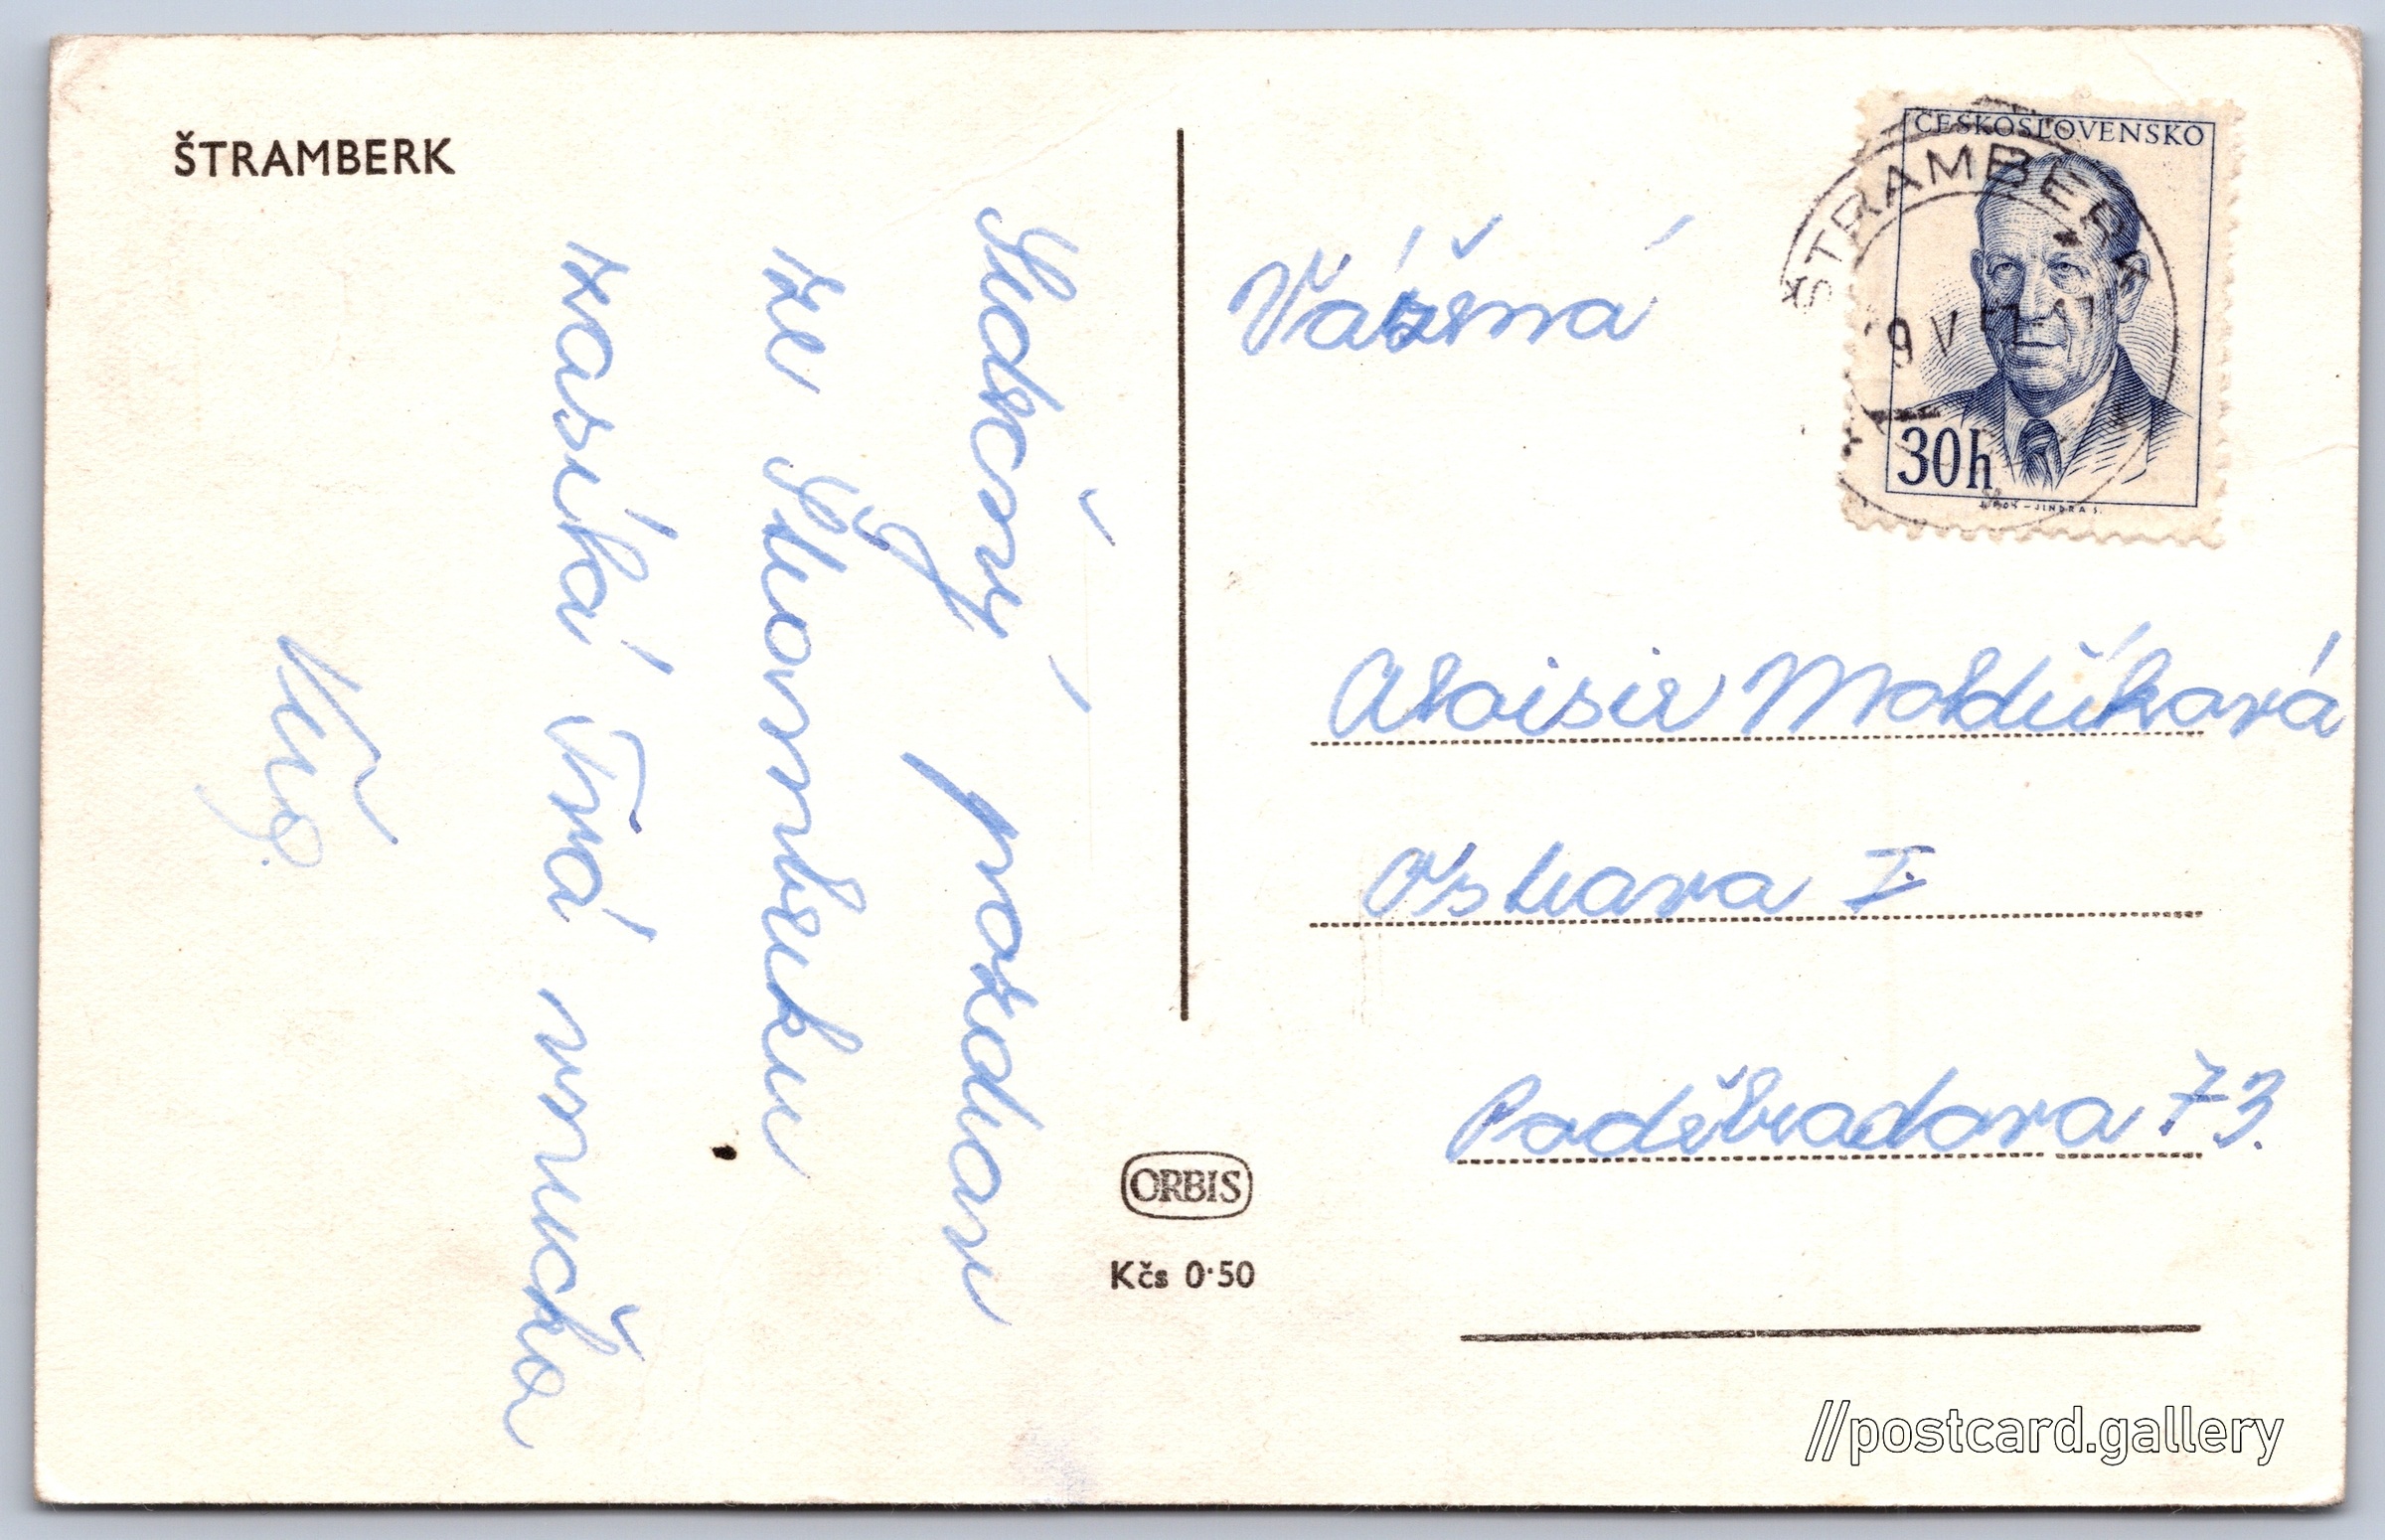 ŠTRAMBERK
Srdečný pozdrav
ze Štramberku
zasílá Tvá vnučka
Věra.
ORBIS
Kčs 0·50
ČESKOSLOVENSKO
30h
ŠTRAMBERK
9 V
Vážená
Aloisie Moldříková
Ostrava I.
Poděbradova 73.
//postcard.gallery